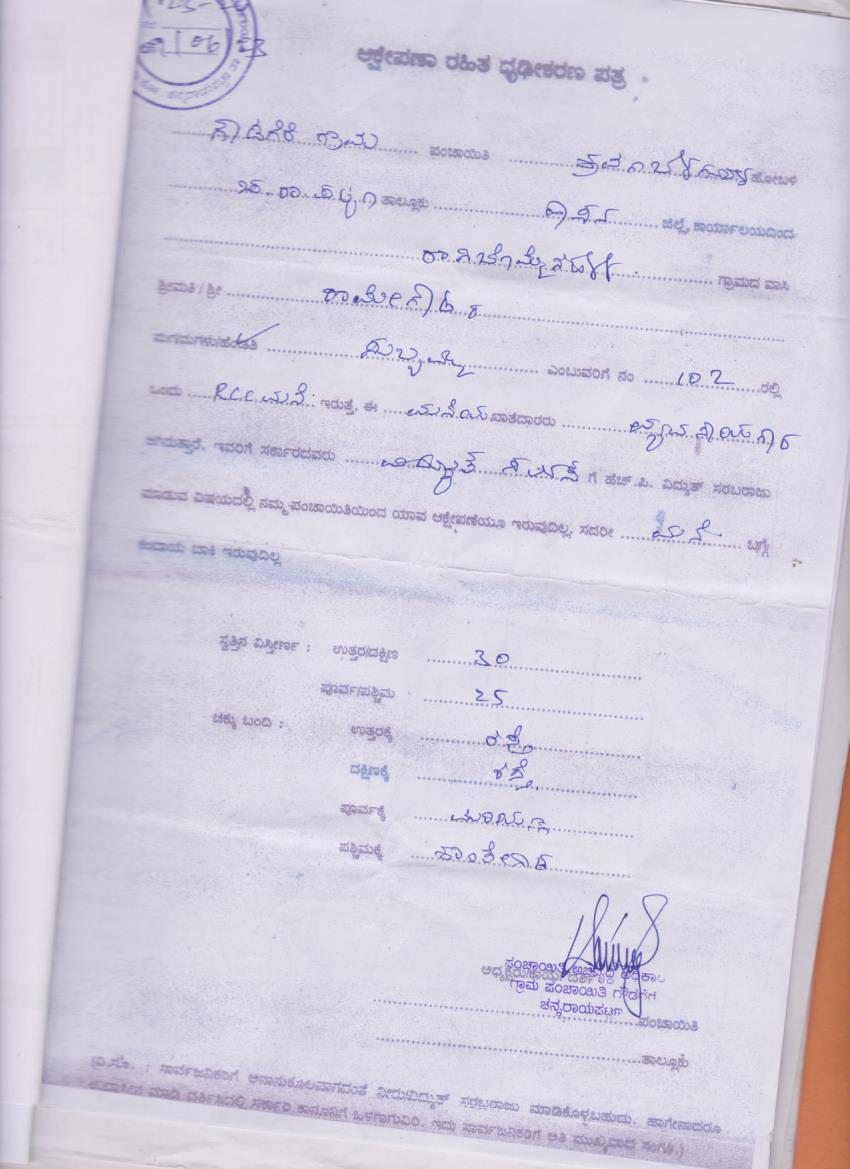 06 23
ಆಕ್ಷೇಪಣಾ ರಹಿತ ಧೃಢೀಕರಣ ಪತ್ರ
ಗೌಡಗೆರೆ ಗ್ರಾಮ ಪಂಚಾಯಿತಿ ಹೋಬಳಿ
ಚ.ರಾ.ಪಟ್ಟಣ ತಾಲ್ಲೂಕು ಹಾಸನ ಜಿಲ್ಲೆ, ಕಾರ್ಯಾಲಯದಿಂದ
ಗ್ರಾಮದ ವಾಸಿ
ಶ್ರೀಮತಿ / ಶ್ರೀ ರಾಮೇಗೌಡ
ಮಗ/ಮಗಳು/ಹೆಂಡತಿ ಸುಬ್ಬಮ್ಮ ಎಂಬುವರಿಗೆ ನಂ 102 ರಲ್ಲಿ
ಒಂದು RCC ಮನೆ ಇರುತ್ತೆ, ಈ ಮನೆಯ ಖಾತೆದಾರರು
ಆಗಿರುತ್ತಾರೆ, ಇವರಿಗೆ ಸರ್ಕಾರದವರು ವಿದ್ಯುತ್ ಗೆ ಹೆಚ್.ಪಿ. ವಿದ್ಯುತ್ ಸರಬರಾಜು
ಮಾಡುವ ವಿಷಯದಲ್ಲಿ ನಮ್ಮ ಪಂಚಾಯಿತಿಯಿಂದ ಯಾವ ಆಕ್ಷೇಪಣೆಯೂ ಇರುವುದಿಲ್ಲ, ಸದರೀ ಮನೆ ಬಗ್ಗೆ
ಕಂದಾಯ ಬಾಕಿ ಇರುವುದಿಲ್ಲ
ಸ್ವತ್ತಿನ ವಿಸ್ತೀರ್ಣ : ಉತ್ತರ/ದಕ್ಷಿಣ 30
ಪೂರ್ವ/ಪಶ್ಚಿಮ 25
ಚಕ್ಕು ಬಂದಿ : ಉತ್ತರಕ್ಕೆ ರಸ್ತೆ
ದಕ್ಷಿಣಕ್ಕೆ ರಸ್ತೆ
ಪೂರ್ವಕ್ಕೆ
ಪಶ್ಚಿಮಕ್ಕೆ ಶಾಂತೇಗೌಡ
ಪಂಚಾಯಿತಿ ಅಭಿವೃದ್ಧಿ
ಗ್ರಾಮ ಪಂಚಾಯಿತಿ
ಚನ್ನರಾಯಪಟ್ಟಣ
ಪಂಚಾಯಿತಿ
ತಾಲ್ಲೂಕು
(ವಿ.ಸೂ. : ಸಾರ್ವಜನಿಕರಿಗೆ ಅನಾನುಕೂಲವಾಗದಂತೆ ನೀರು/ವಿದ್ಯುತ್ ಸರಬರಾಜು ಮಾಡಿಕೊಳ್ಳಬಹುದು. ಹಾಗೇನಾದರೂ
ಮಾಡಿ ವರ್ತಿಸಿದಲ್ಲಿ ಸರ್ಕಾರಿ ಕಾನೂನಿಗೆ ಒಳಗಾಗುವಿರಿ. ಇದು ಸಾರ್ವಜನಿಕರಿಗೆ ಅತಿ ಮುಖ್ಯವಾದ ಸಂಗತಿ.)